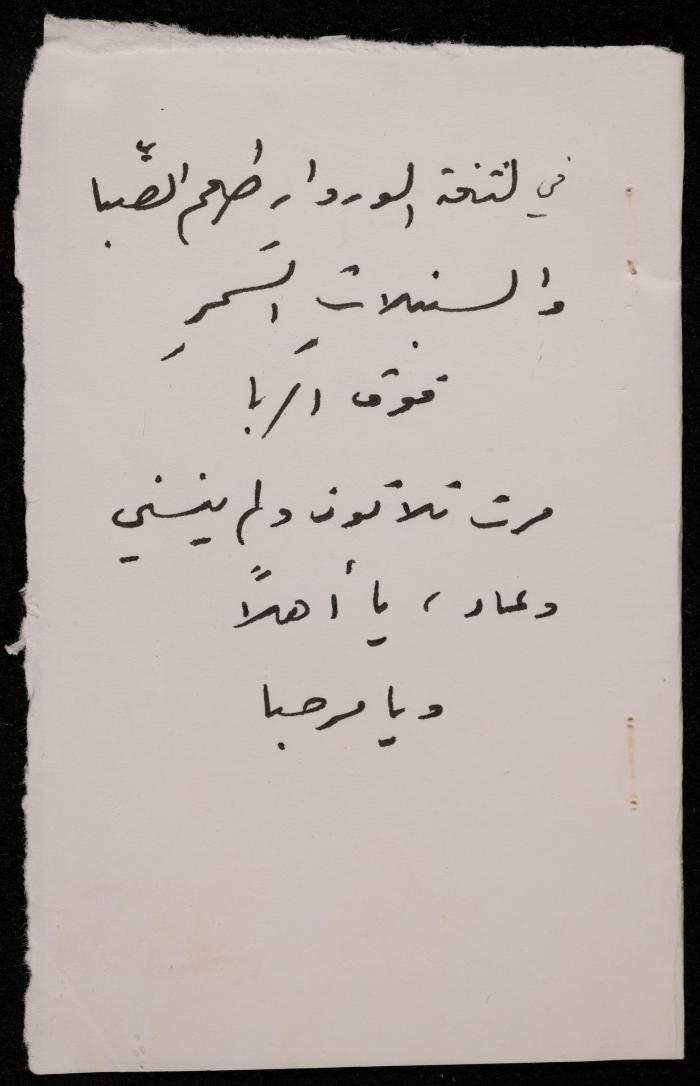 في لثغة الوروار طعم الصِّبا
والسنبلاتِ السَّمرِ
فوق الرَّبا
مرت ثلاثون ولم ينسني
وعاد، يا أهلاً
ويا مرحبا